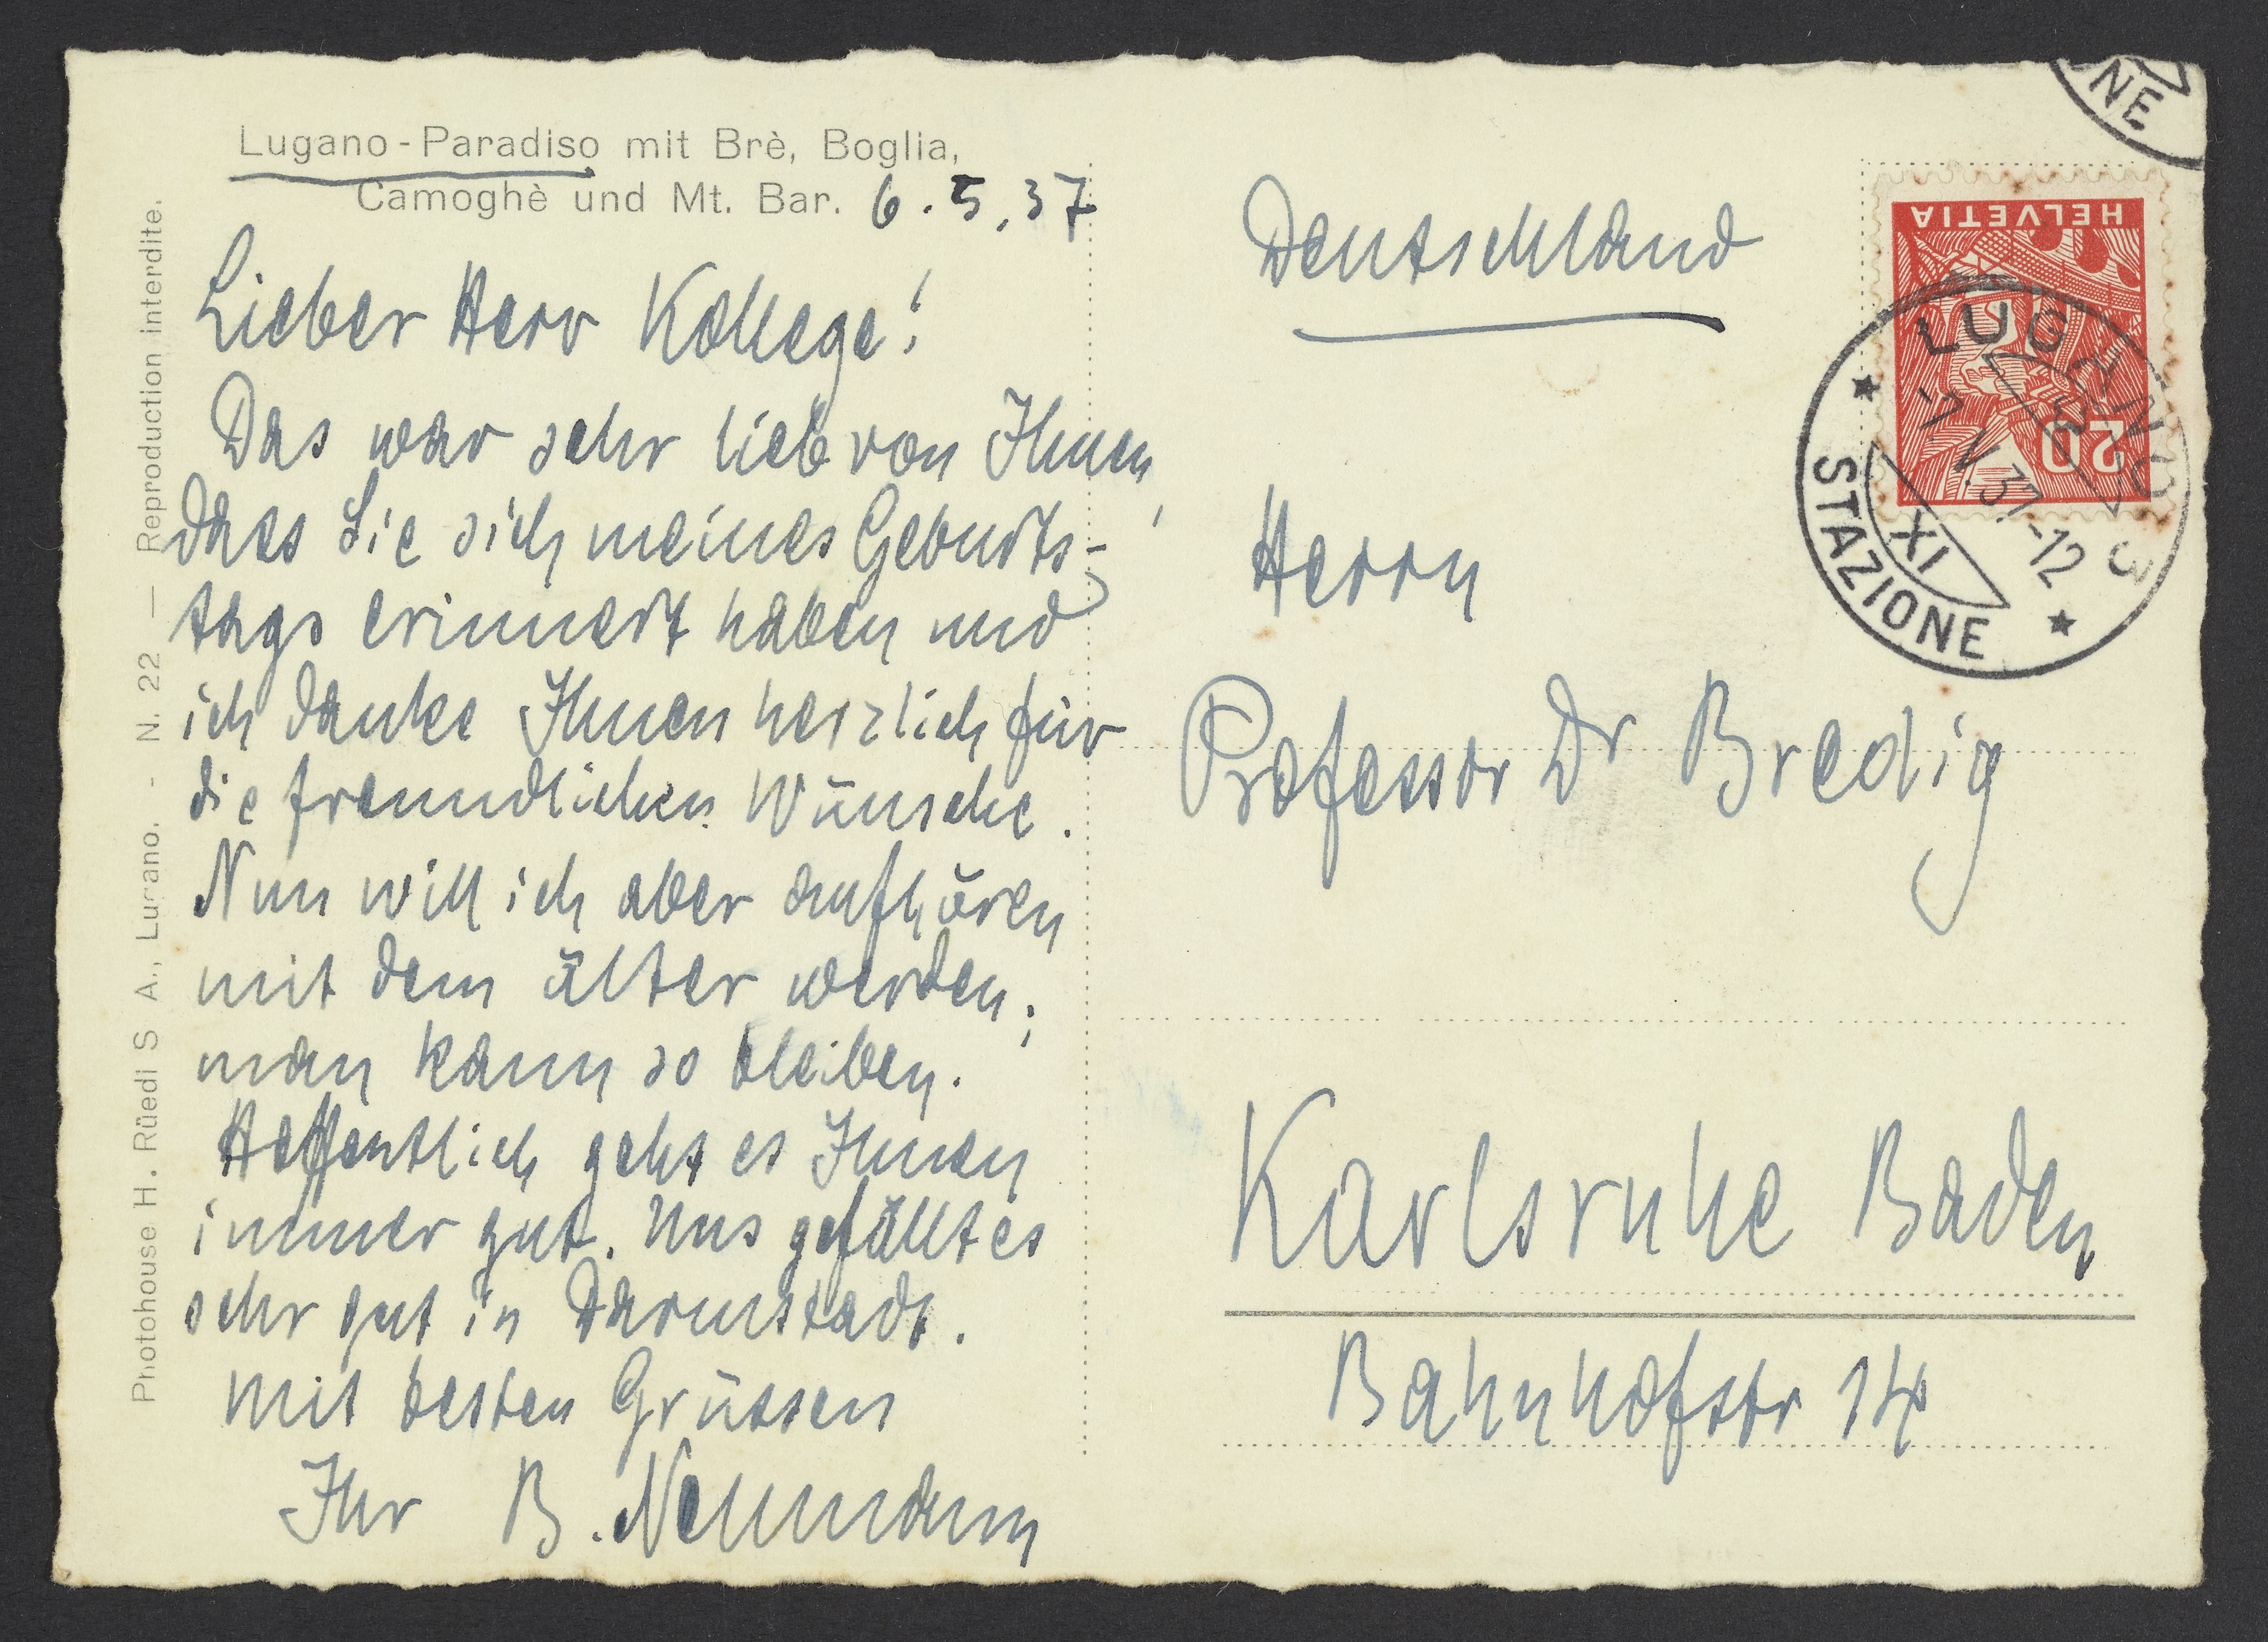 Lugano-Paradiso mit Brè, Boglia,
Camoghè und Mt. Bar. 6.5.37
Lieber Herr Kollege!
Das war sehr lieb von Ihnen,
dass Sie sich meines Geburts-
tags erinnert haben und
ich danke Ihnen herzlich für
die freundlichen Wünsche.
Nun will ich aber aufhören
mit dem älter werden;
man kann so bleiben.
Hoffentlich geht es Ihnen
immer gut. Uns gefällt es
sehr gut in Darmstadt.
Mit besten Grüssen
Ihr B. Neumann
Photohouse H. Rüedi S A., Lugano. - N. 22 — Reproduction interdite.
Deutschland
Herrn
Professor Dr Bredig
Karlsruhe Baden
Bahnhofstr 14
NE
HELVETIA
20
LUGANO 3
7.V.37.-12
XI
STAZIONE